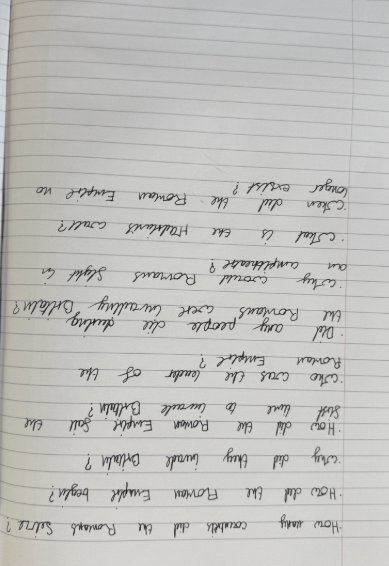 How many countrys did the Romans Seize?
· How did the Roman Empire begin?
· Why did they invade Britain?
· How did the Roman Empire fail the
first time to invade Britain?
· Who was the leader of the
Roman Empire?
· Did any people die during
the Romans were invading Britain?
· Why would Romans fight in
an amphitheatre?
· What is the Hadrian's wall?
· When did the Roman Empire no
longer exsist?